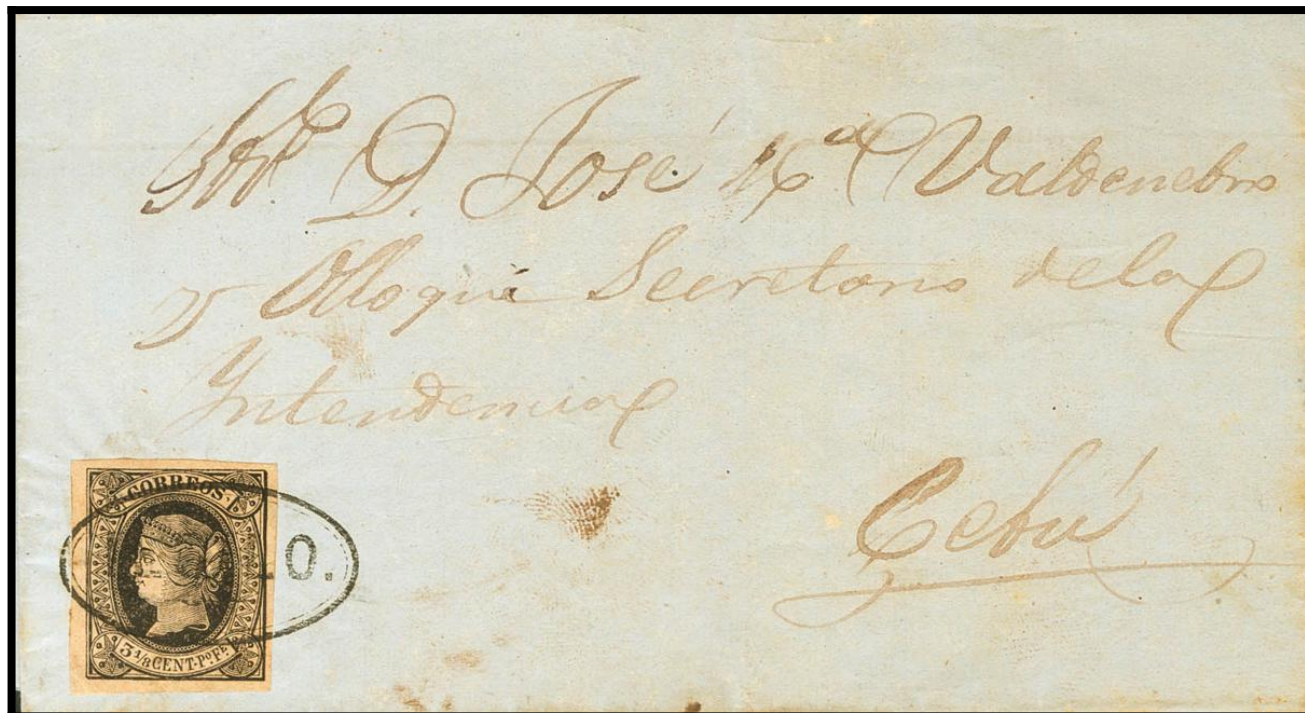 Sor. D. José Ma Valdenebro
y Olloqui Secretario de la
Intendencia
Cebú
CORREOS
O.
3 1/8 CENT. Po. Fe.